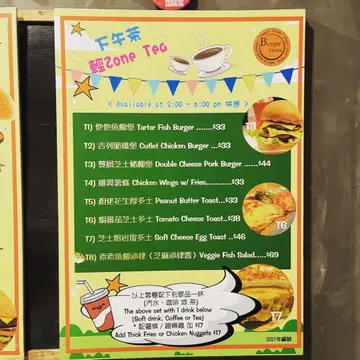 下午茶
輕Zone Tea
Burger Home
< Available at 2:00 - 6:00 pm 供應 >
T1) 他他魚柳堡 Tartar Fish Burger .......$33
T2) 吉列脆雞堡 Cutlet Chicken Burger ...$33
T3) 雙層芝士豬柳堡 Double Cheese Pork Burger ....$44
T4) 雞翼薯條 Chicken Wings w/ Fries............$33
T5) 粗佬花生厚多士 Peanut Butter Toast...$33
T6) 蕃茄芝士多士 Tomato Cheese Toast..$38
T7) 芝士焓岩蛋多士 Soft Cheese Egg Toast ..$46
T8) 素素魚柳沙律 (芝麻沙律醬) Veggie Fish Salad......$69
T3
T6
T7
以上套餐配下列飲品一杯
(汽水、咖啡 或 茶)
The above set with 1 drink below
(Soft drink, Coffee or Tea)
* 配薯條 / 雞樂雞 加 $17
Add Thick Fries or Chicken Nuggets $17
2021年編制